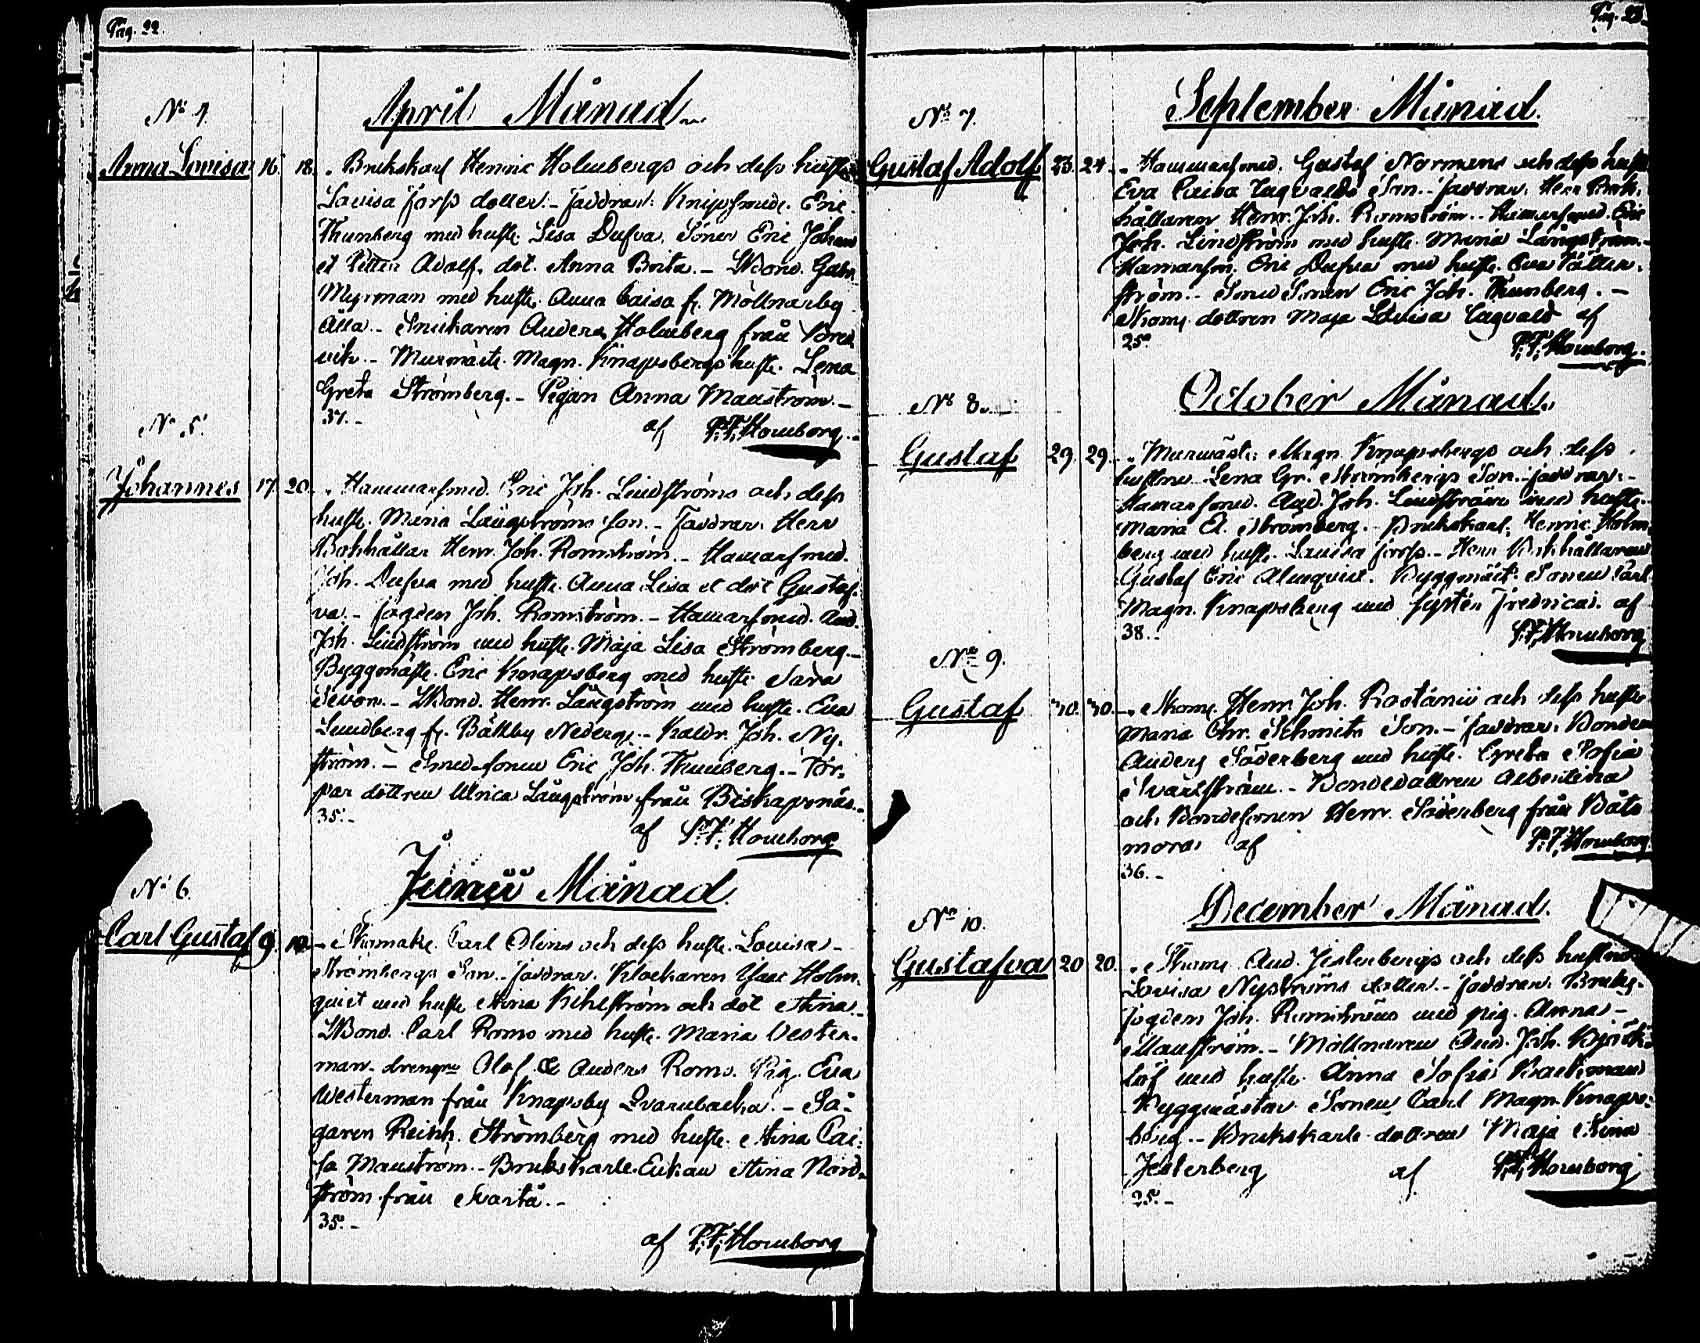 Pag. 22.
April Månad
No 4.
Anna Lovisa 16. 18. Brukskarl Henric Holmbergs och dess hustru
Lovisa Forss dotter. - Faddrar: Knipsmed. Eric
Thunberg med hustr. Lisa Dufva. Söner Eric Johan
et Petter Adolf, dot. Anna Brita. - Bond. Gabr.
Myrman med hustr. Anna Caisa fr. Möllnarby
Ålla. - Snickaren Anders Holmberg från Bred
vik. - Murmäst. Magn. Knapsbergs hustr. Lena
Greta Strömberg. - Pigan Anna Manström. -
37. - af P. F. Homborg.
No 5.
Johannes 17. 20. Hammarsmed. Eric Joh. Lindströms och dess
hustr. Maria Långströms son. - Faddrar. Herr
Bokhållar Henr. Joh. Romström. - Hamarsmed.
Joh. Dufva med hustr. Anna Lisa et dot. Gustaf-
va. - fogden Joh. Romström. - Hamarsmed. And.
Joh. Lindström med hustr. Maja Lisa Strömberg. -
Byggmäst. Eric Knapsberg med hustr. Sara
- Bond. Henr. Långström med hustr. Eva
Lundberg fr. Bällby Nederg. - Joh. Ny-
ström. - Smed sonen Eric Joh. Thunberg. - Tor-
par dottren Ulrica Långström från Biskopsnäs. -
35. - af P. F. Homborg
Junii Månad
No 6.
Carl Gustaf 9. 10. Skomak. Carl Olins och dess hustr. Lovisa
Strömbergs Son. - faddrar. Klockaren Isaac Holm-
quist med hustr. Stina Kihlström och dot. Stina
Bond. Carl Roms med hustr. Maria Vester-
man. drengne Olof & Anders Roms. Pig. Eva
Westerman från Knapsby Qvarnbacka. - Så-
garen Reinh. Strömberg med hustr. Stina Cai-
sa Manström. - Brukskarls Enkan Stina Nord-
ström från Svartå. -
35. -
af P. F. Homborg
Pag. 23.
September Månad.
No 7.
Gustaf Adolf 23. 24. Hammarsmed. Gustaf Normens och dess hustr.
Eva Caisa Lagvalds Son. - faddrar. Herr Bok-
hållaren Henr. Joh. Romström. - Hamarsmed. Eric
Joh. Lindström med hustr. Maria Långström. -
Hamarsm. Eric Dufva med hustr. Eva Päller-
ström. - Smed Sonen Eric Joh. Thunberg. -
Skom. dottren Maja Lovisa Lagvald af
25. P. F. Homborg.
October Månad.
No 8.
Gustaf 29. 29. Murmäst. Magn. Knapsbergs och dess
hustru Lena Gr. Strömbergs Son. - faddrar. -
Hamarsmed. And. Joh. Lindström med hustr.
Maria El. Strömberg. - Brukskarl. Henric Holm-
berg med hustr. Lovisa Forss. - Herr Bokhållaren
Gustaf Eric Almqvist. Byggmäst. Sonen Carl
Magn. Knapsberg med syster Fredrica. af
38. - P. F. Homborg
No 9.
Gustaf 30. 30. Skom. Henr. Joh. Rostånii och dess hustr.
Maria Chr. Schmits Son. - faddrar. Bonden
Anders Söderberg med hustr. Greta Sofia
Svärdström. - Bondedottren Albertina
och Bondesonen Henr. Söderberg från Båts
mora af P. F. Homborg
36. -
December Månad.
No 10.
Gustafva 20. 20. Skom. And. Jesterbergs och dess hustru
Lovisa Nyströms dotter. - faddrar. Bruks-
fogden Joh. Romströms med pig. Anna
Manström. - Möllnaren And. Joh. Björk-
löf med hustr. Anna Sofia Backman
Byggmästar Sonen Carl Magn. Knaps-
berg. - Brukskarls dottren Maja Stina
Jesterberg af P. F. Homborg
25. -